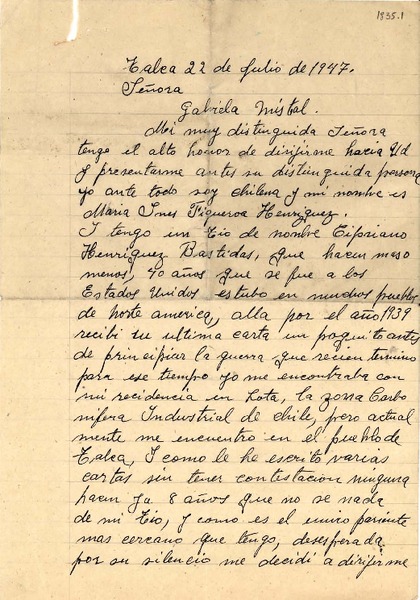 1835.1
Talca 22 de Julio de 1947.
Señora
Gabriela Mistal.
Mi muy distinguida Señora
tengo el alto honor de dirijirme hacia Ud
y presentarme antes su distinguida persona
yo ante todo soy chilena y mi nombre es
Maria Ines Figueroa Henriquez.
I tengo un tio de nombre Cipriano
Henriquez Bastidas, que hacen maso
menos, 40 años que se fue a los
Estados Unidos estubo en muchos pueblos
de norte america, alla por el año 1939
recibi su ultima carta un poquito antes
de principiar la guerra que recien termino
para ese tiempo yo me encontraba con
mi recidencia en Lota, la zona Carbo
nifera Industrial de chile, pero actual
mente me encuentro en el pueblo de
Talca, I como le he escrito varias
cartas sin tener contestacion ninguna
hacen ya 8 años que no se nada
de mi tio, y como es el unico pariente
mas cercano que tengo, desesperada
por su silencio me decidi a dirijirme